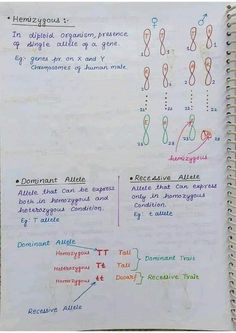 • Hemizygous :-
In diploid organism, presence
of single allele of a gene.
Eg: genes pr. on X and Y
Chromosomes of human male
♀ ♂
1 1
2 2
22 22
23 23
hemizygous
• Dominant Allele
Allele that can be express
both in homozygous and
heterozygous Condition.
Eg: T allele
• Recessive Allele
Allele that can express
only in homozygous
Condition.
Eg: t allele
Dominant Allele
Homozygous TT Tall
Heterozygous Tt Tall
Dominant Trait
Homozygous tt Dwarf Recessive Trait
Recessive Allele